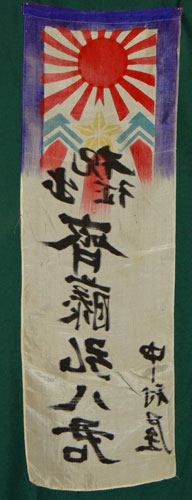 祝出征
齊藤弘八君
中村屋